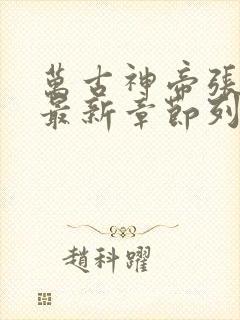 萬古神帝張
最新章節列
趙科躍